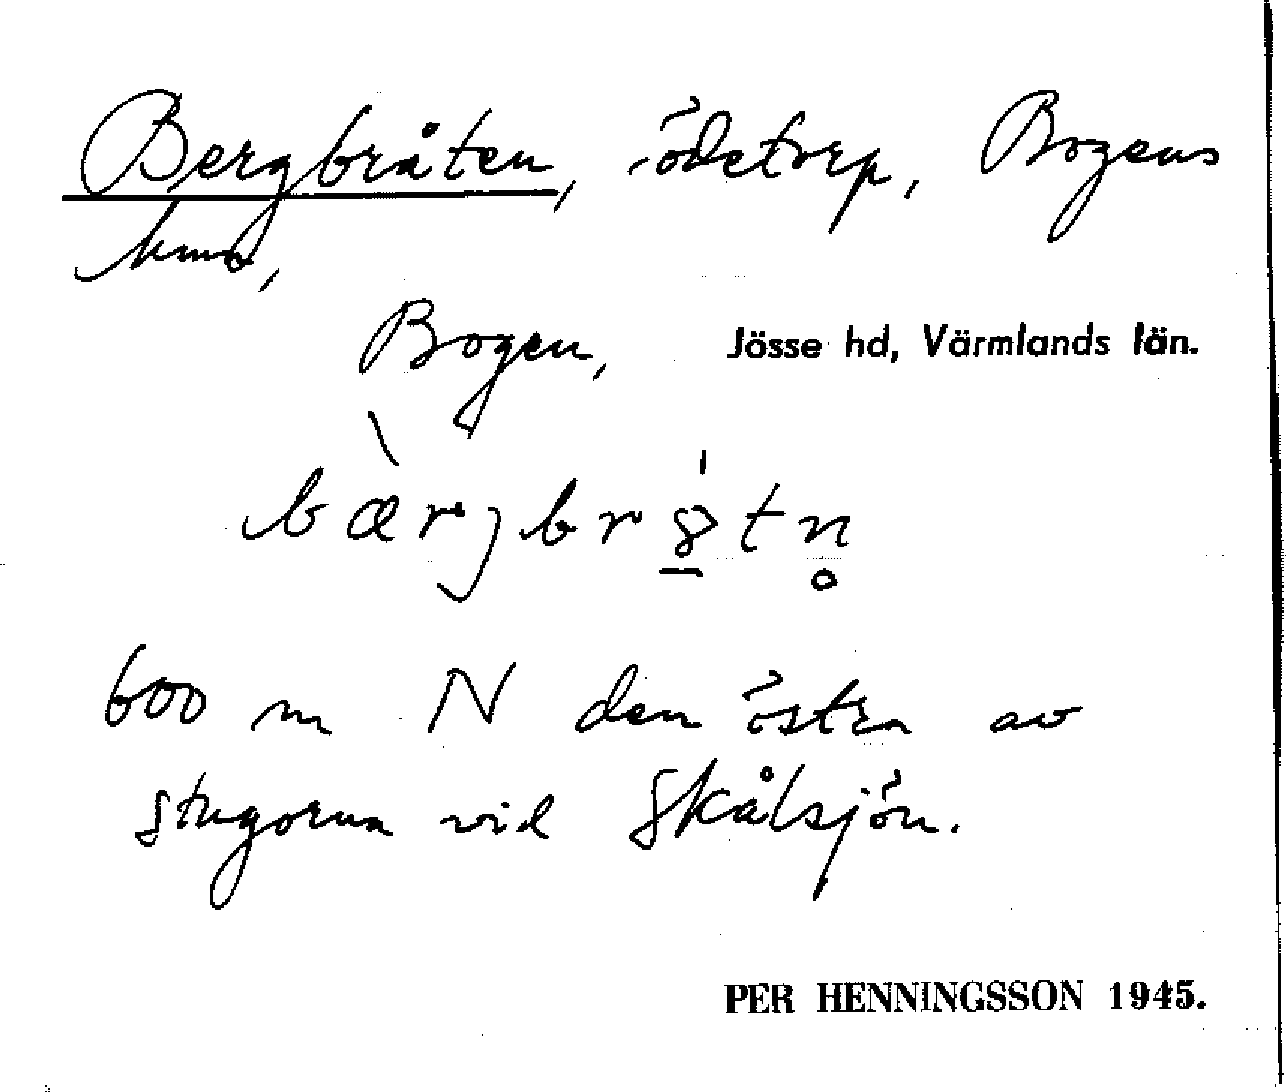 Bergbråten, ödetorp, Bogens
kmb,
Bogen, Jösse hd, Värmlands län.
600 m N den östra av
stugorna vid Skålsjön.
PER HENNINGSSON 1945.